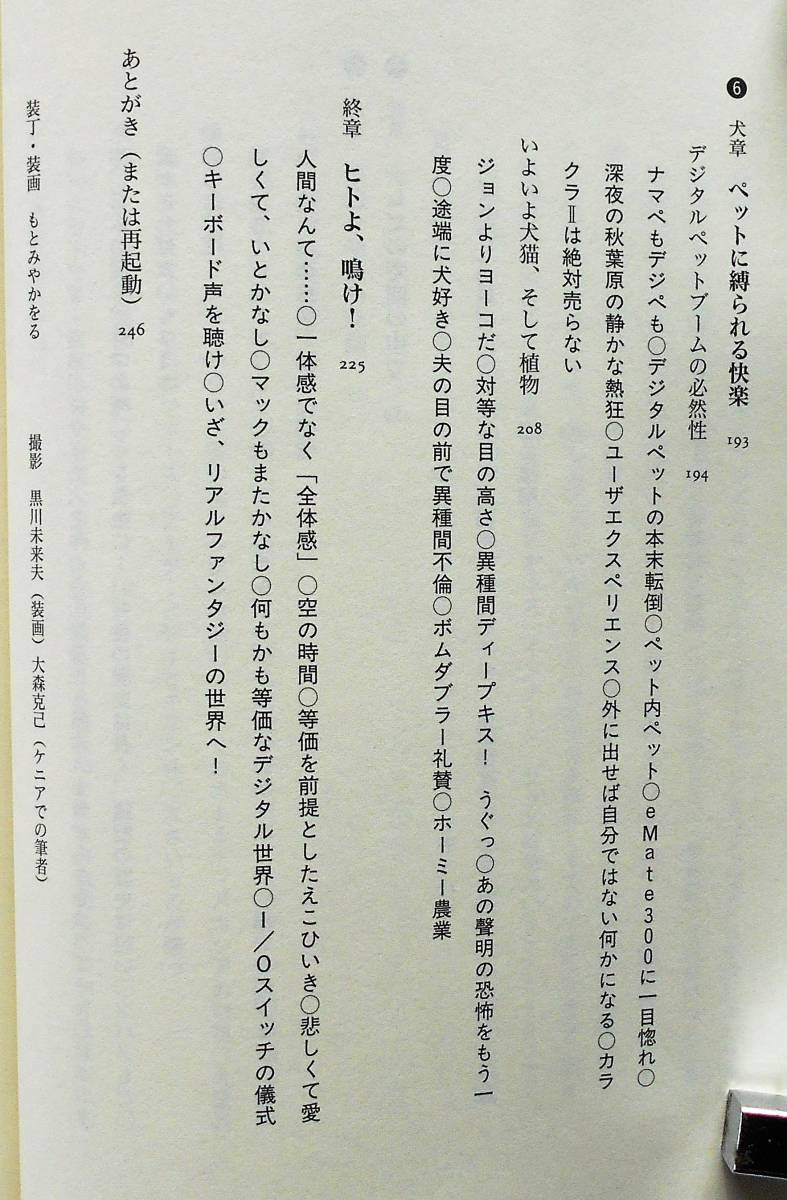 ❻ 犬章 ペットに縛られる快楽 193
デジタルペットブームの必然性 194
ナマペもデジペも○デジタルペットの本末転倒○ペット内ペット○eMate300に一目惚れ○
深夜の秋葉原の静かな熱狂○ユーザエクスペリエンス○外に出せば自分ではない何かになる○カラ
クラⅡは絶対売らない
いよいよ犬猫、そして植物 208
ジョンよりヨーコだ○対等な目の高さ○異種間ディープキス! うぐっ○あの聲明の恐怖をもう一
度○途端に犬好き○夫の目の前で異種間不倫○ボムダブラー礼賛○ホーミー農業
終章 ヒトよ、鳴け! 225
人間なんて……○一体感でなく「全体感」○空の時間○等価を前提としたえこひいき○悲しくて愛
しくて、いとかなし○マックもまたかなし○何もかも等価なデジタル世界○I/Oスイッチの儀式
○キーボード声を聴け○いざ、リアルファンタジーの世界へ!
あとがき(または再起動) 246
装丁・装画 もとみやかをる 撮影 黒川未来夫(装画)大森克己(ケニアでの筆者)